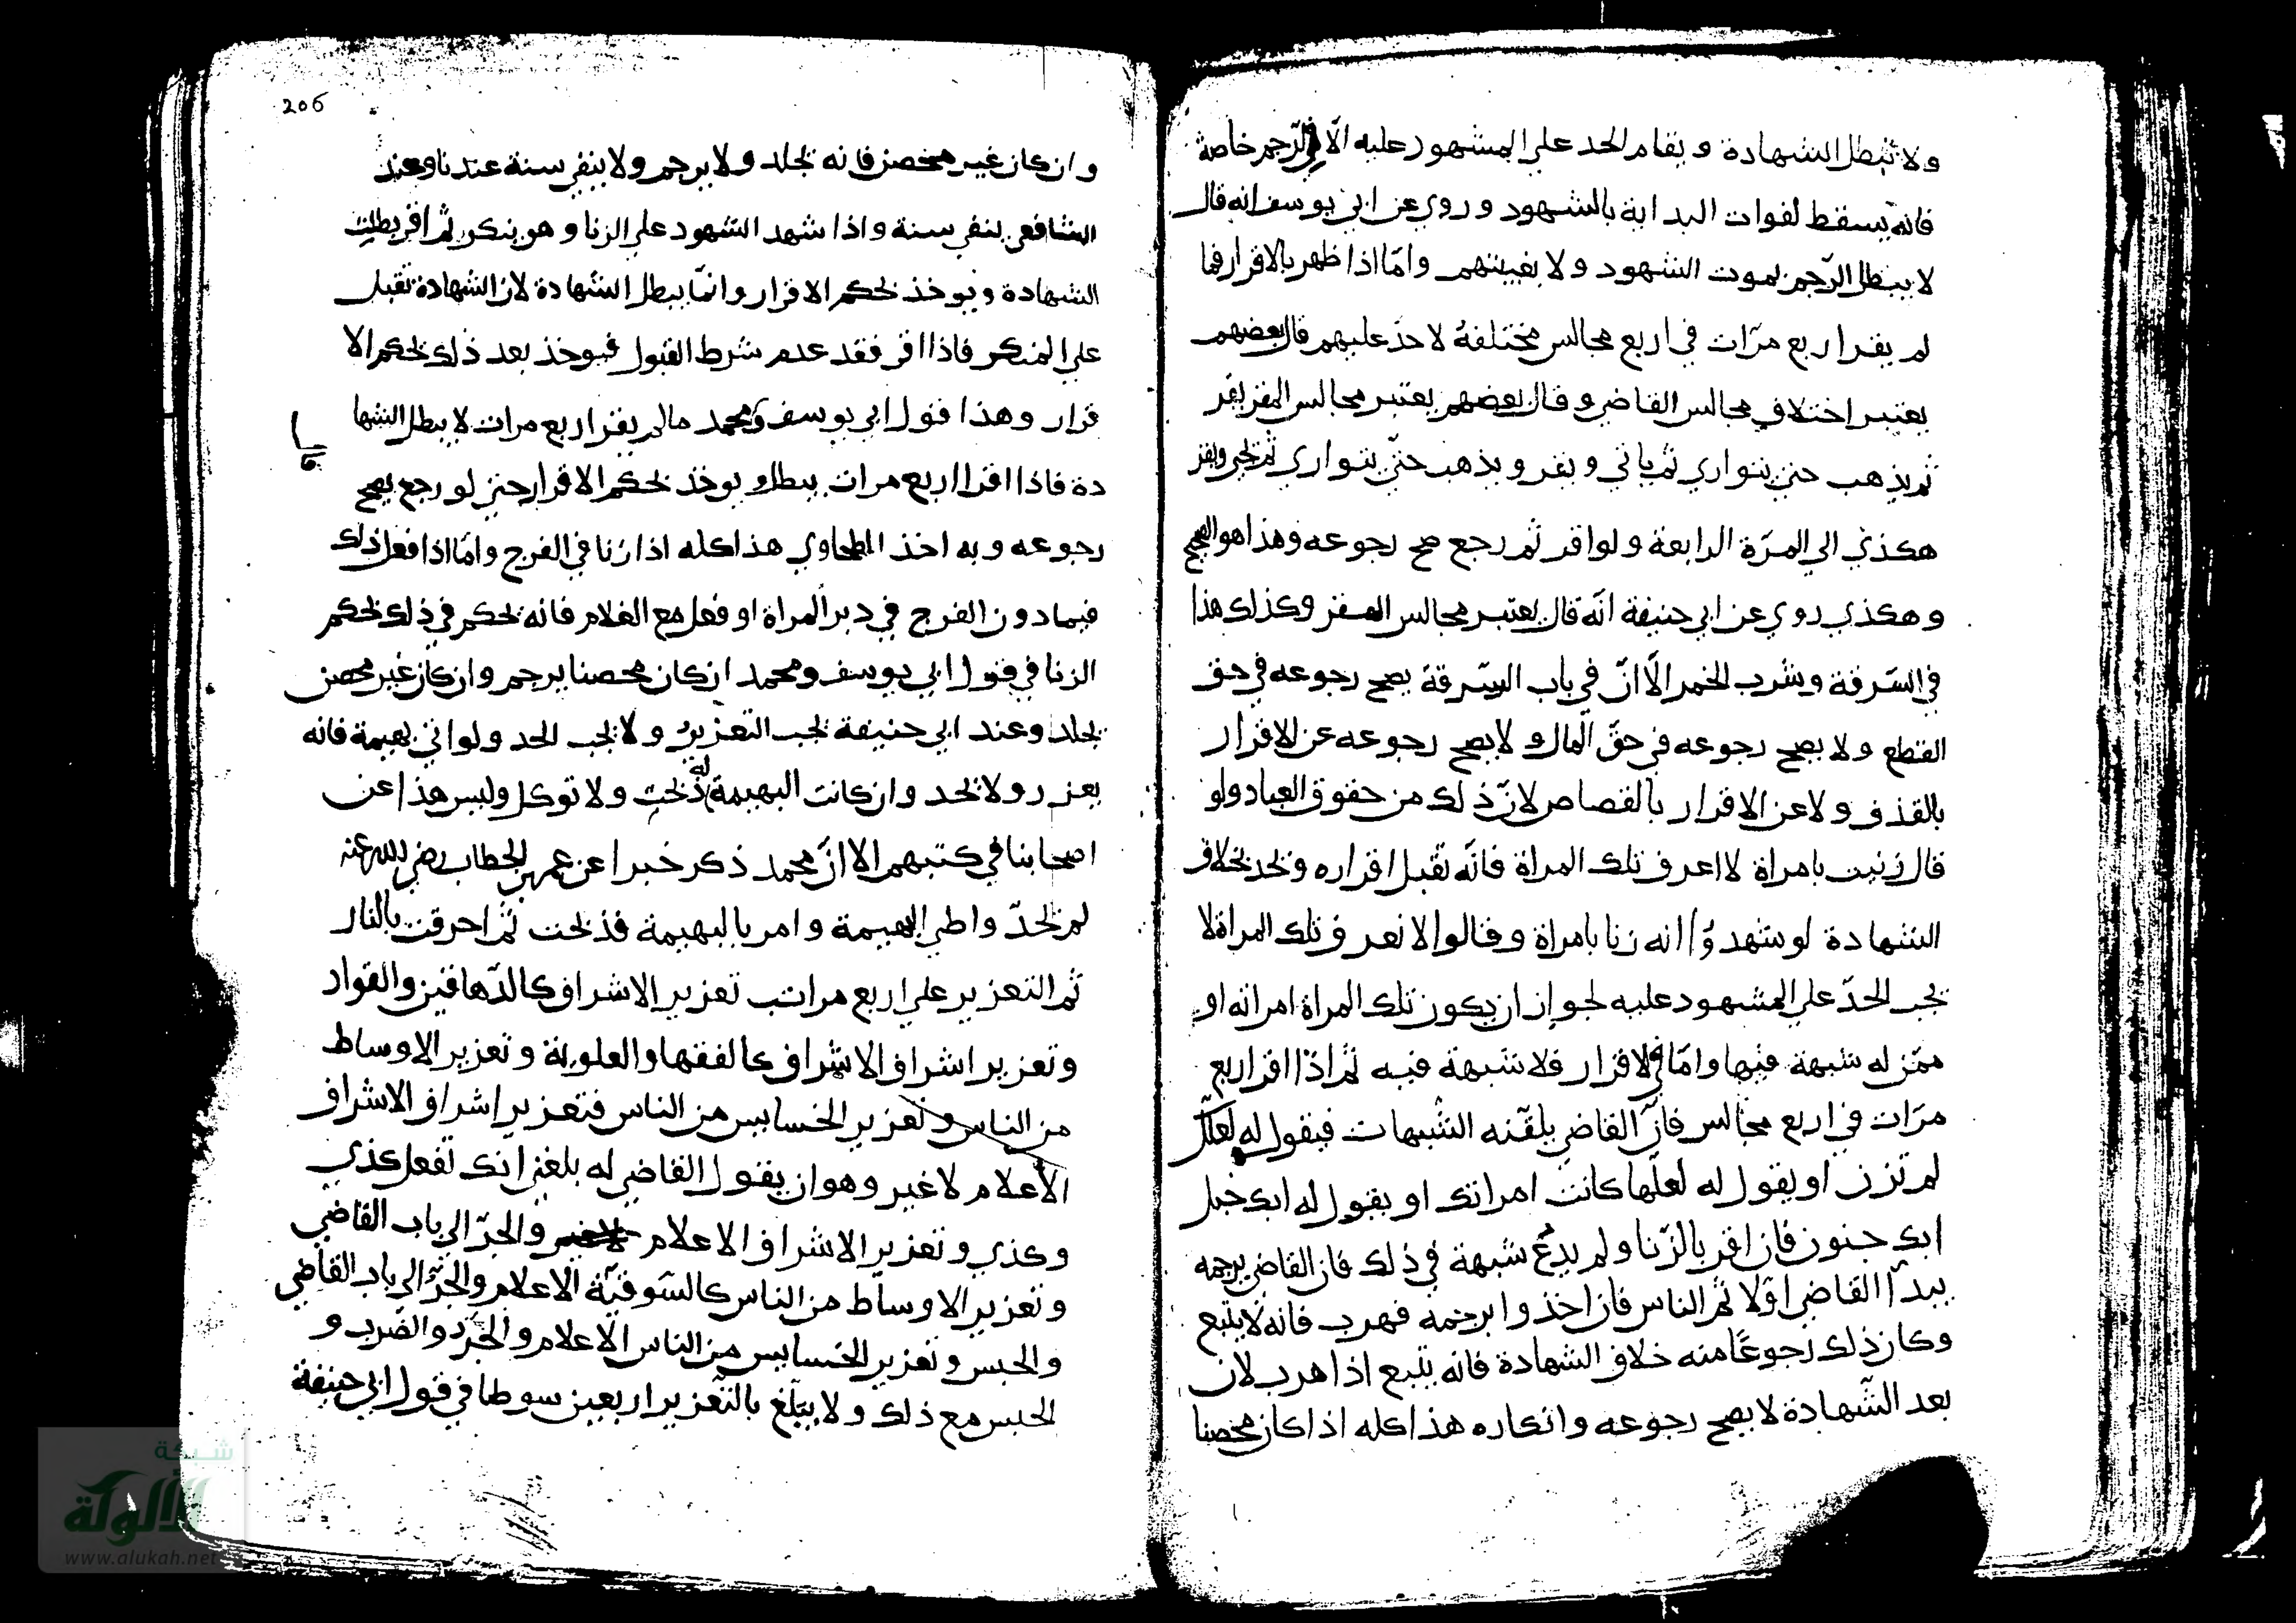 ولا تبطل الشهادة ويقام الحد علي المشهود عليه الّا في الرّجم خاصة
فانه يسقط لفوات البداية بالشهود وروي عن ابي يوسف انه قال
لا يبطل الرّجم بموت الشهود ولا بغيبتهم وامّا اذا ظهر بالاقرار فما
لم يقر اربع مرّات في اربع مجالس مختلفة لا حدّ عليهم قال بعضهم
يعتبر اختلاف مجالس القاضي وقال بعضهم يعتبر مجالس المقر يقر
ثم يذهب حتي يتواري ثم ياتي ويقر ويذهب حتّي يتواري ثم يجي ويقر
هكذي الي المرّة الرابعة ولو اقر ثم رجع صح رجوعه وهذا هو الصحيح
وهكذي روي عن ابي حنيفة انّه قال يعتبر مجالس المقر وكذلك هذا
في السّرقة وشرب الخمر الّا انّ في باب السّرقة يصح رجوعه في حق
القطع ولا يصح رجوعه في حقّ المال ولا يصح رجوعه عن الاقرار
بالقذف ولا عن الاقرار بالقصاص لانّ ذلك من حقوق العباد ولو
قال زنيت بامراة لا اعرف تلك المراة فانّه تقبل اقراره ويحد بخلاف
الشهادة لو شهدوا انه زنا بامراة وقالوا لا نعرف تلك المراة لا
يجب الحدّ علي المشهود عليه لجواز ان يكون تلك المراة امراته او
ممّن له شبهة فيها وامّا في الاقرار فلا شبهة فيه ثم اذا اقر اربع
مرّات في اربع مجالس فانّ القاضي يلقّنه الشبهات فيقول له لعلّك
لم تزن او يقول له لعلّها كانت امراتك او يقول له ابك خبل
ابك جنون فان اقر بالزّنا ولم يدّع شبهة في ذلك فان القاضي يرجمه
يبدأ القاضي اوّلا ثم الناس فان اخذوا برجمه فهرب فانه لا يتبع
وكان ذلك رجوعًا منه خلاف الشهادة فانه يتبع اذا هرب لان
بعد الشّهادة لا يصح رجوعه وانكاره هذا كله اذا كان محصنا
206
وان كان غير محصن فانه يجلد ولا يرجم ولا ينفي سنة عندنا وعند
الشافعي ينفي سنة واذا شهد الشهود علي الزنا وهو ينكر ثم اقر بطلت
الشهادة ويوخذ بحكم الاقرار وانّما يبطل الشهادة لان الشهادة تقبل
علي المنكر فاذا اقر فقد عدم شرط القبول فيوخذ بعد ذلك بحكم الا
قرار وهذا قول ابي يوسف ومحمد مالم يقر اربع مرات لا يبطل الشها
دة فاذا اقرا اربع مرات يبطل ويوخذ بحكم الاقرار حتي لو رجع يصح
رجوعه وبه اخذ الطحاوي هذا كله اذا زنا في الفرج وامّا اذا فعل ذلك
فيما دون الفرج في دبر المراة او فعل مع الغلام فانه يحكم في ذلك بحكم
الزنا في قول ابي يوسف ومحمد ان كان محصنا يرجم وان كان غير محصن
يجلد وعند ابي حنيفة يجب التعزير ولا يجب الحد ولو اتي بهيمة فانه
يعزر ولا يحد وان كانت البهيمة له ذبحت ولا توكل وليس هذا عن
اصحابنا في كتبهم الا انّ محمد ذكر خبرا عن عمر بن الخطاب رضي الله عنه
لم يحدّ واطي البهيمة وامر بالبهيمة فذبحت ثم احرقت بالنار
ثم التعزير علي اربع مراتب تعزير الاشراف كالدّهاقين والقواد
وتعزير اشراف الاشراف كالفقها والعلوية وتعزير الاوساط
من الناس وتعزير الخسايس من الناس فتعزير اشراف الاشراف
الأعلام لا غير وهو ان يقول القاضي له بلغني انك تفعل كذي
وكذي وتعزير الاشراف الاعلام والجرّ الي باب القاضي
وتعزير الاوساط من الناس كالسّوقيّة الاعلام والجرّ الي باب القاضي
والحبس وتعزير الخسايس من الناس الاعلام والجرّ والضّرب و
الحبس مع ذلك ولا يبلغ بالتّعزير اربعين سوطا في قول ابي حنيفة
شبكة
الألوكة
www.alukah.net